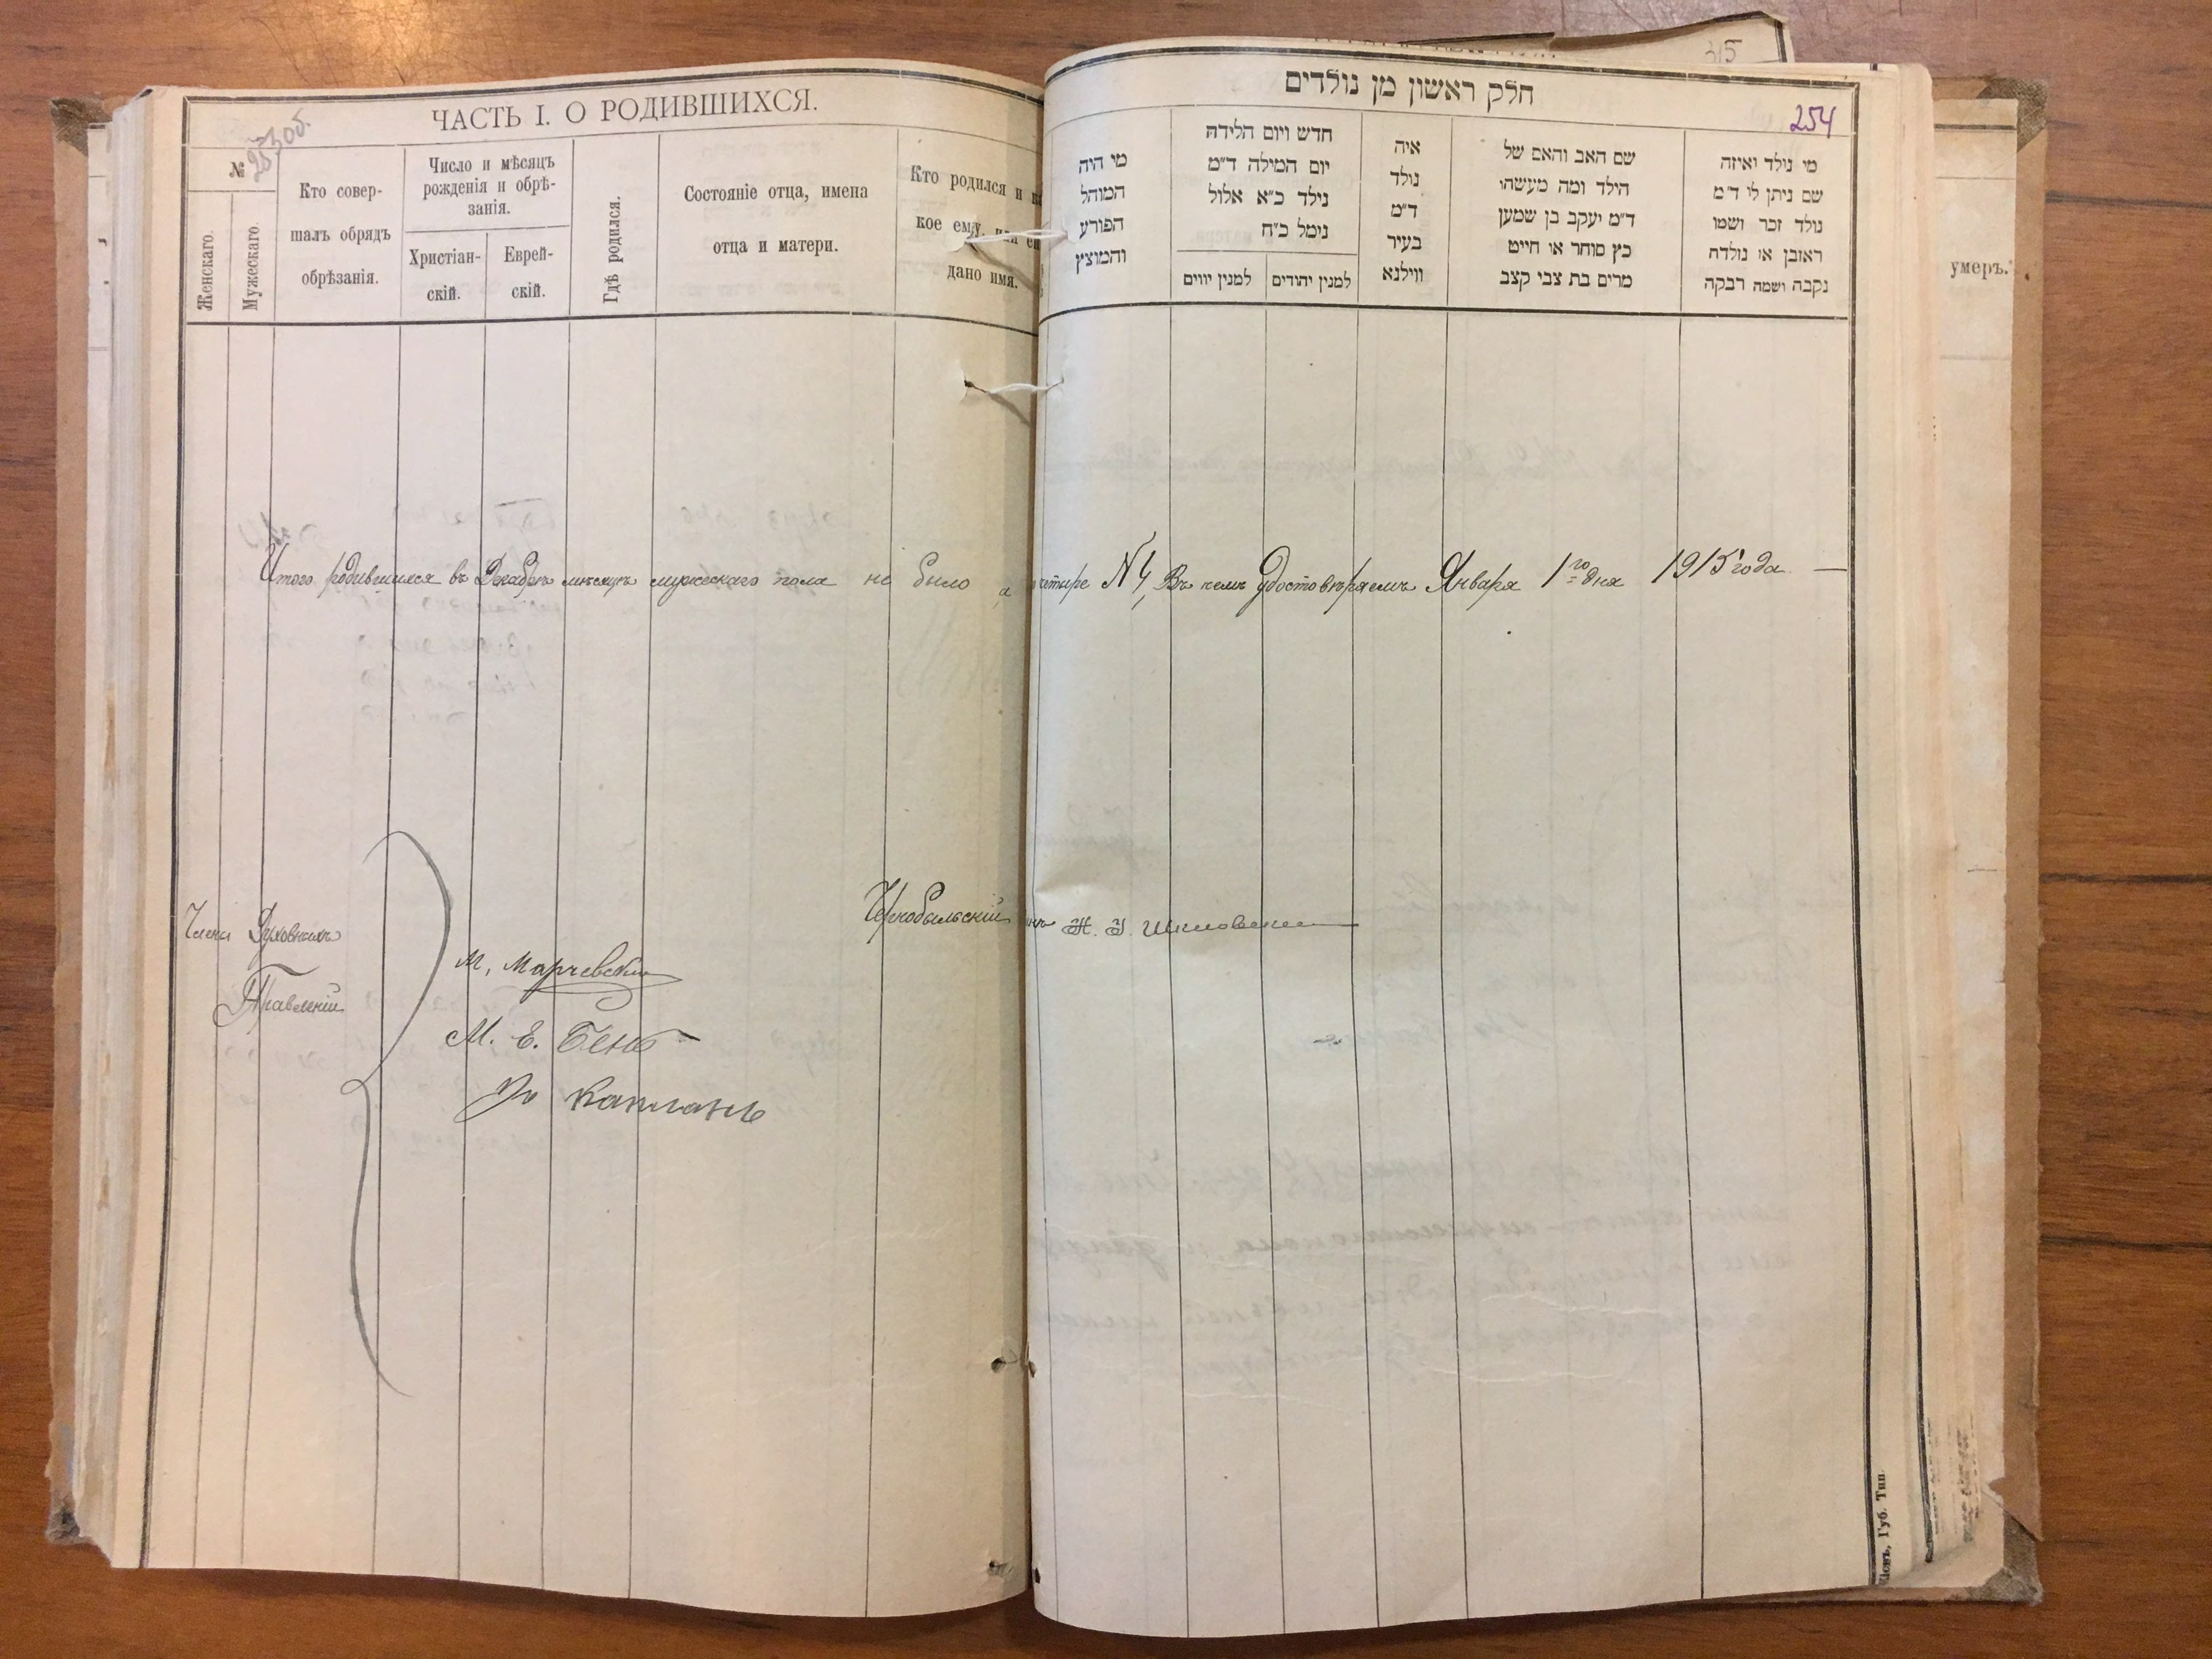 ЧАСТЬ I. О РОДИВШИХСЯ.
253об.
№
Женскаго.
Мужескаго.
Кто совер-
шалъ обрядъ
обрѣзанія.
Число и мѣсяцъ
рожденія и обрѣ-
занія.
Христіан-
скій.
Еврей-
скій.
Гдѣ родился.
Состояніе отца, имена
отца и матери.
Кто родился и ка
кое ему, или ей
дано имя.
Итого родившихся въ Декабрѣ мѣсяцѣ мужескаго пола не было а
Члены Духовныхъ
Правленій
М. Марчевскій
М. Е. Бенъ
Капланъ
Чернобыльскій
חלק ראשון מן נולדים
254
315
מי נולד ואיזה
שם ניתן לי ד״מ
נולד זכר ושמו
ראובן או נולדת
נקבה ושמה רבקה
שם האב והאם של
הילד ומה מעשהו
ד״מ יעקב בן שמען
כץ סוחר או חייט
מרים בת צבי קצב
איה
נולד
ד״מ
בעיר
ווילנא
חדש ויום הלידה
יום המילה ד״מ
נילד כ״א אלול
נימל כ״ח
למנין יהודים
למנין יווים
מי היה
המוהל
הפורע
והמוצץ
четыре №4, Въ чемъ удостовѣряемъ Января 1го дня 1915 года.
умеръ.
Губ. Тип.